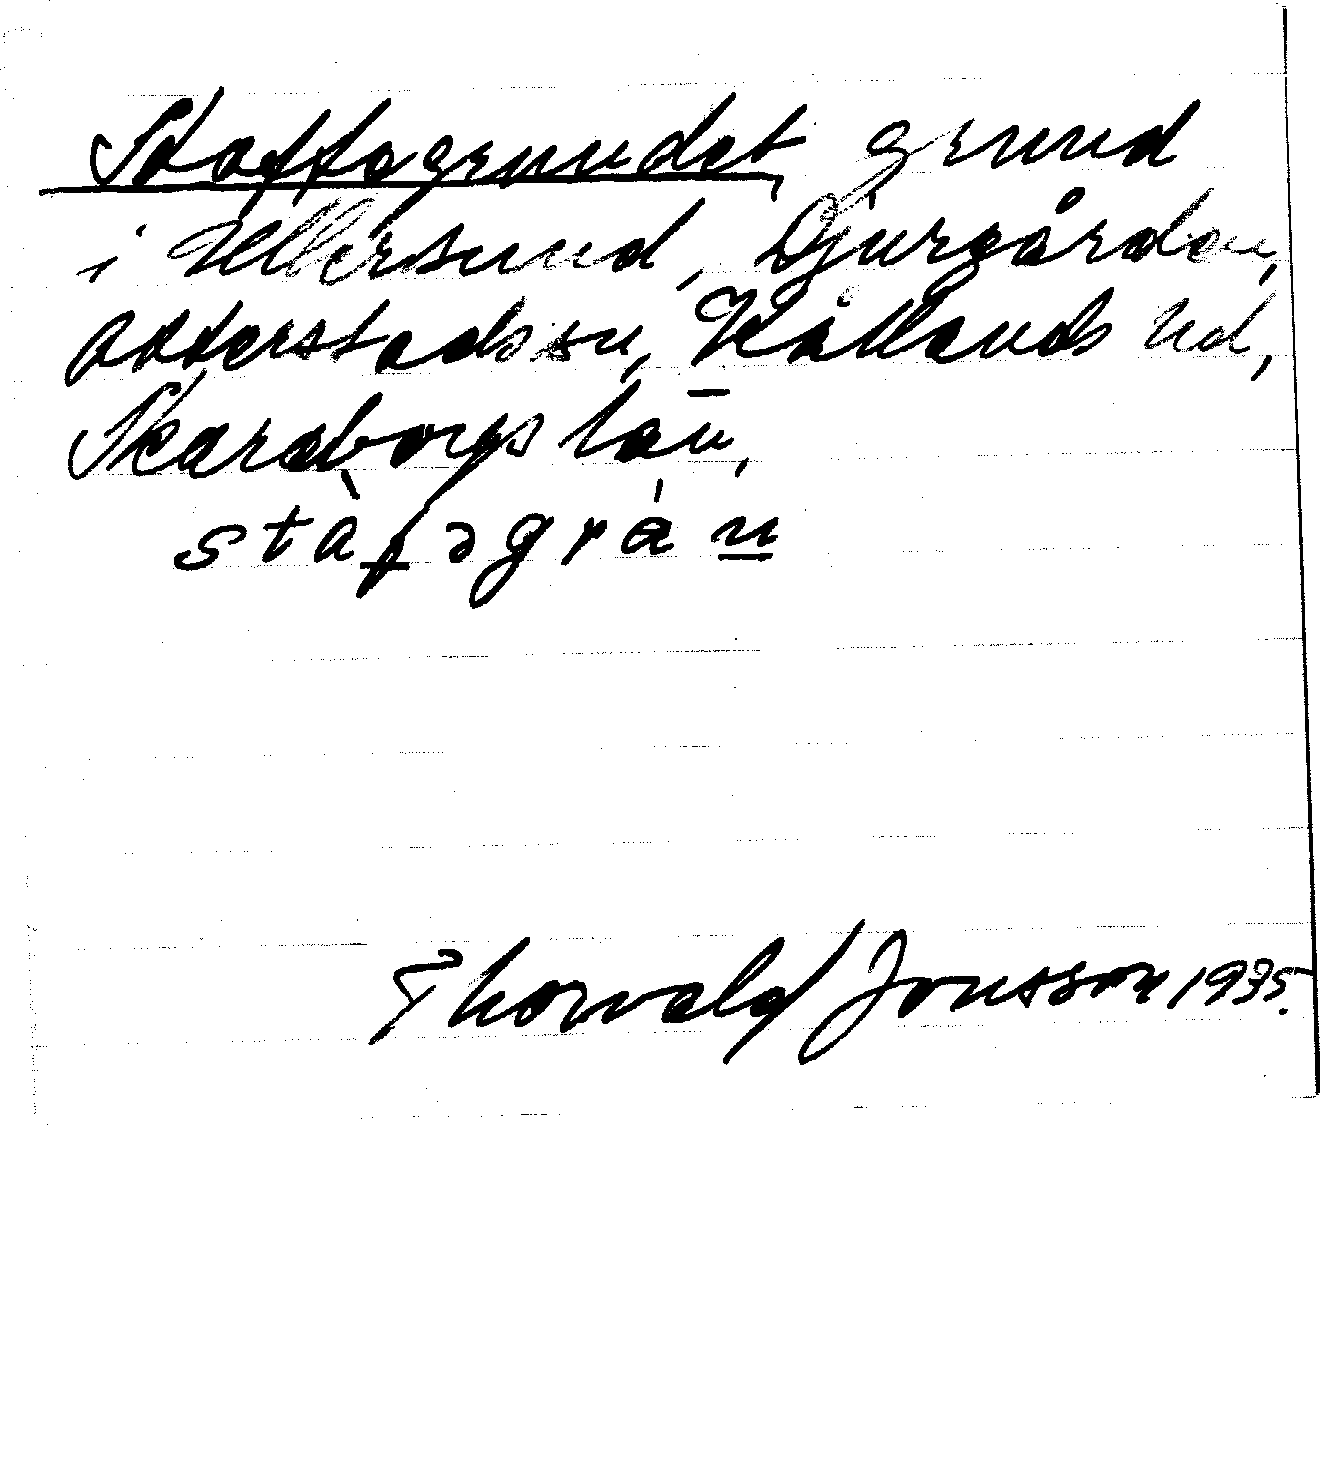 Staffagrundet, grund
i Ullersund, Djurgården,
Otterstads sn, Kållands hd,
Skaraborgs län,
stàfəgrá
Thorvald Jonsson 1935.